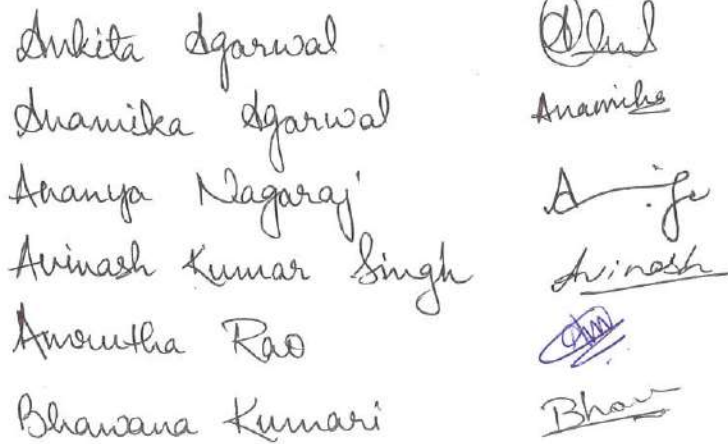 Ankita Agarwal
Anamika Agarwal Anamika
Ananya Nagaraj
Avinash Kumar Singh Avinash
Amrutha Rao
Bhawana Kumari Bhav